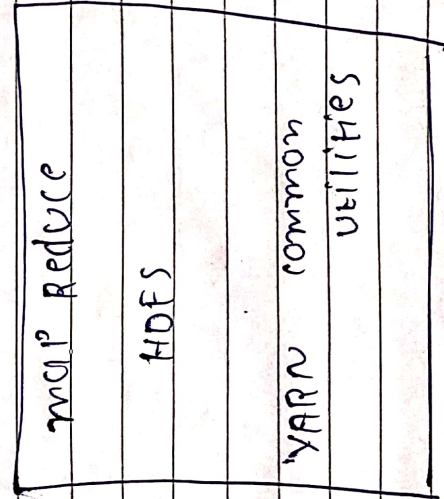 map Reduce
HDFS
YARN common
utilities